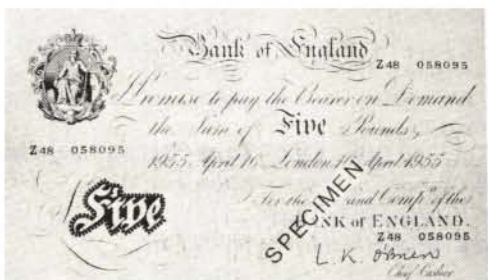 Bank of England
Z48 058095
I Promise to pay the Bearer on Demand
the Sum of Five Pounds
Z48 058095
1955 April 16 London 16 April 1955
For the Govr and Compa of the
BANK of ENGLAND.
Z48 058095
£ Five
SPECIMEN
L. K. O'Brien
Chief Cashier